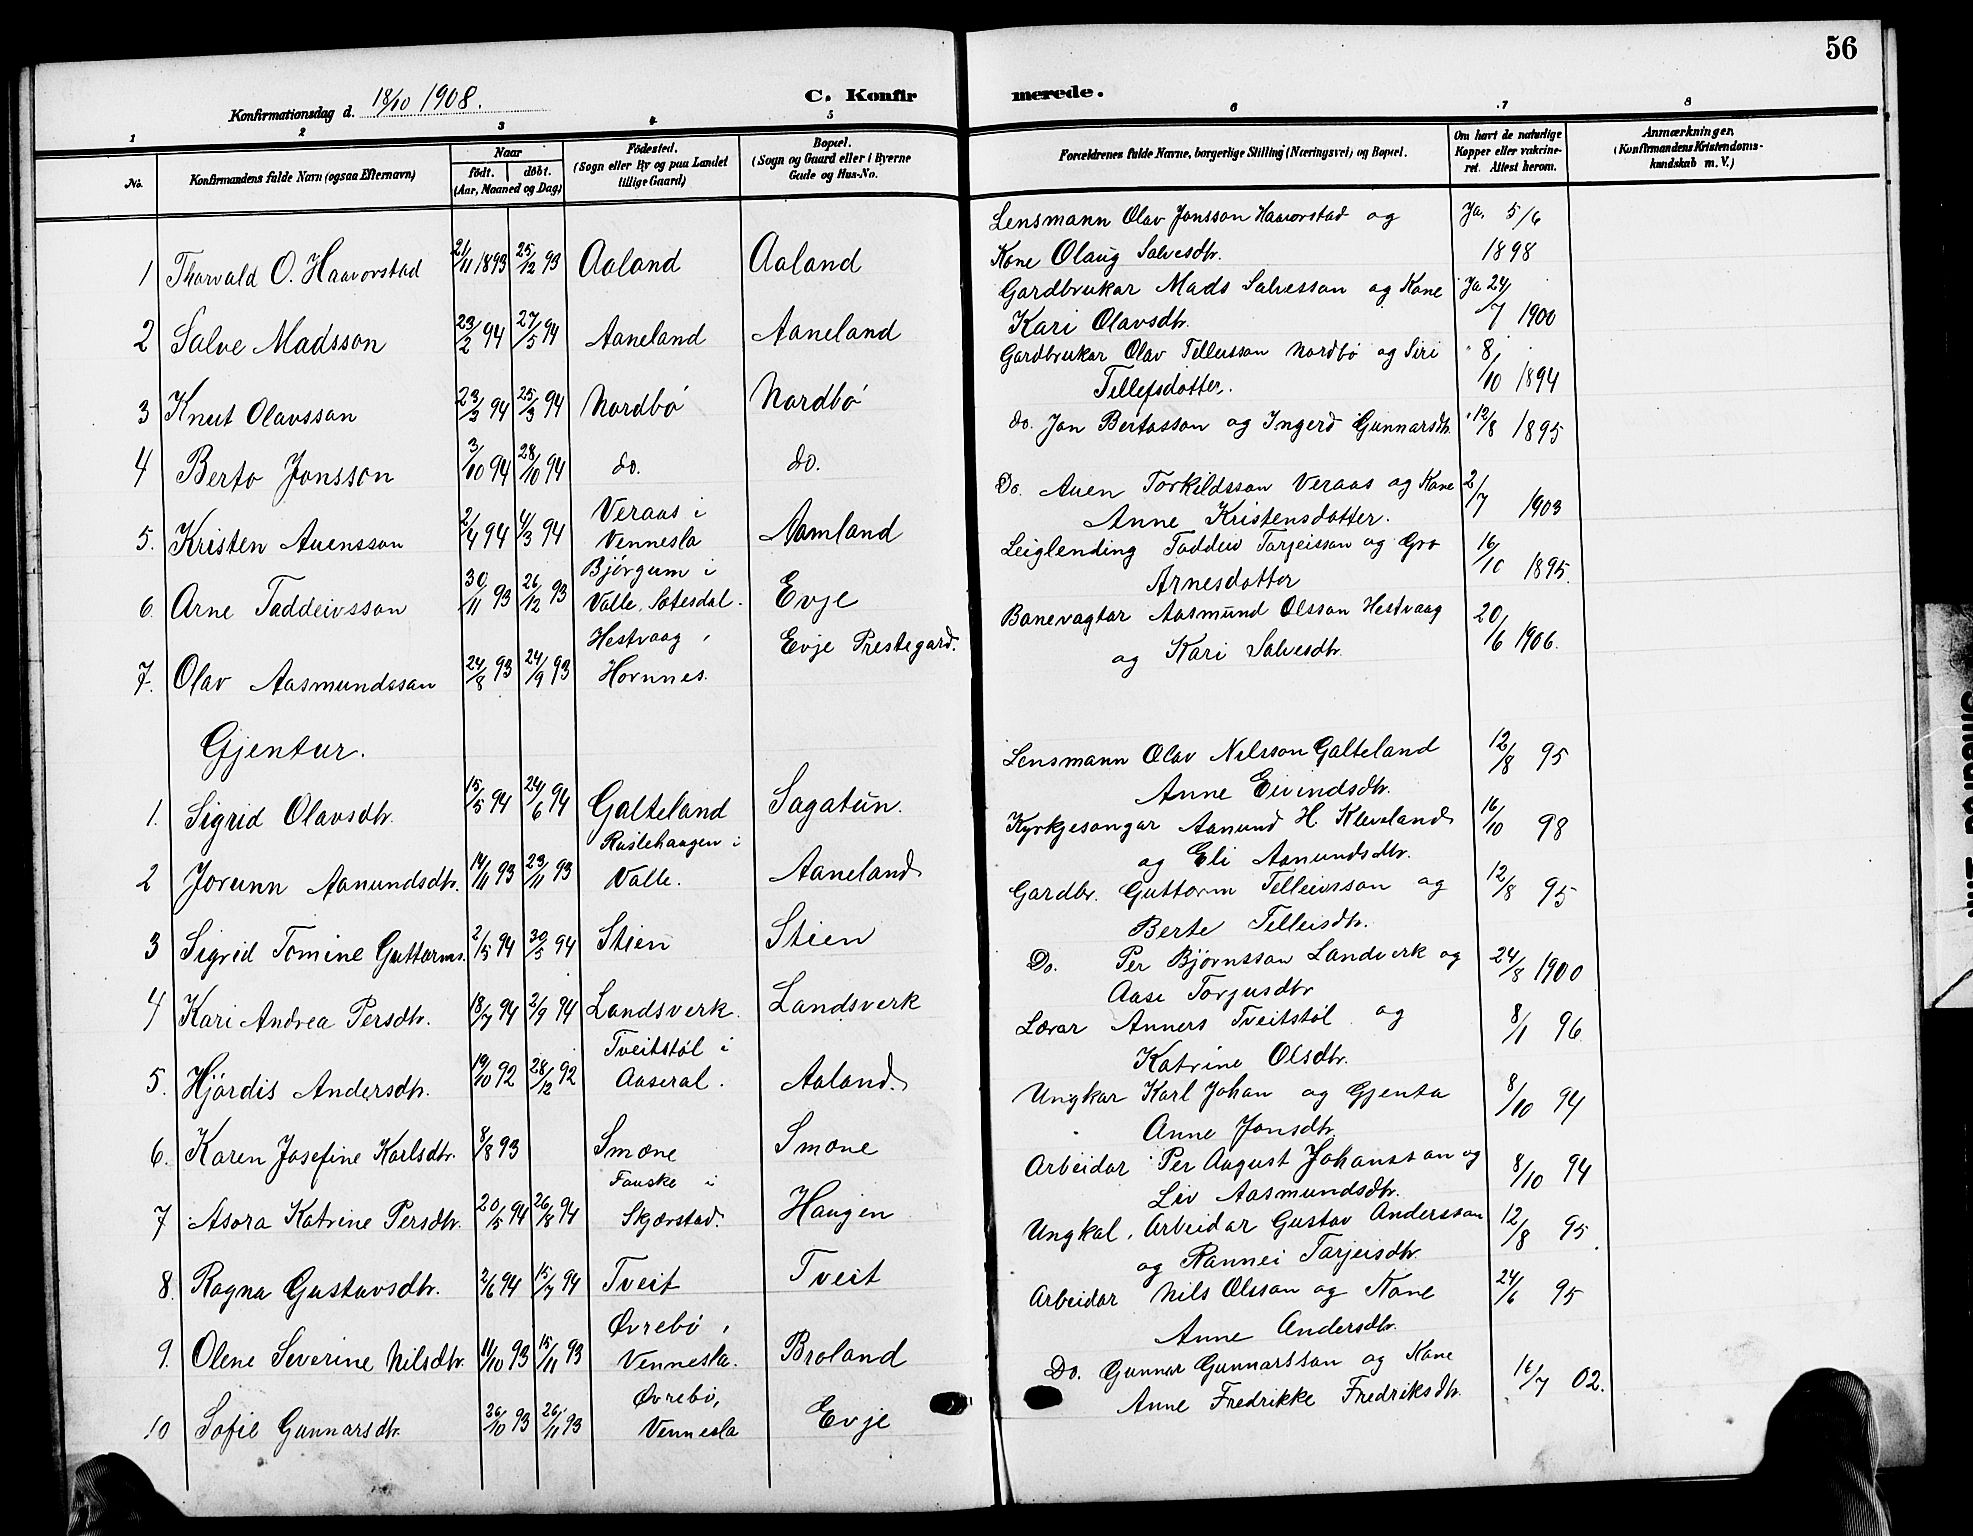 56
Konfirmationsdag d. 18/10 1908.
C. Konfirmerede.
1 2 3 4 5 6 7 8
No.
Konfirmandens fulde Navn (ogsaa Efternavn)
Naar
født. døbt.
(Aar, Maaned og Dag)
Fødested.
(Sogn eller By og paa Landet
tillige Gaard)
Bopæl.
(Sogn og Gaard eller i Byerne
Gade og Hus-No.
Forældrenes fulde Navne, borgerlige Stilling (Næringsvei) og Bopæl.
Om havt de naturlige
Kopper eller vakcine-
ret. Attest herom.
Anmærkninger.
(Konfirmandens Kristendoms-
kundskab m. V.)
1 Thorvald O. Haavorstad 21/11 1893 25/12 93 Aaland Aaland
Lensmann Olav Jonsson Haavorstad og Ja. 5/6
Kone Olaug Salvesdtr. 1898
2 Salve Madsson 23/2 94 27/5 94 Aaneland Aaneland
Gardbrukar Mads Salvesson og Kone Ja 24
Kari Olavsdtr. /7 1900
3 Knut Olavsson 23/3 94 25/3 94 Nordbø Nordbø
Gardbrukar Olav Tellefsson Nordbø og Siri " 8/
Tellefsdotter. 10 1894
4 Berto Jonsson 3/10 94 28/10 94 do. do.
do. Jon Bertosson og Ingerd Gunnarsdtr. " 12/8 1895
5. Kristen Auensson 2/4 94 4/3 94 Veraas i
Vennesla Aamland
Do. Auen Torkildsson Veraas og Kone 2/7 1903
Anne Kristensdotter.
6. Arne Taddeivsson 30/11 93 26/12 93 Bjørgum i
Valle, Sætesdal. Evje
Leiglending Taddeiv Tarjeisson og Gro 16/10 1895.
Arnesdotter
7. Olav Aasmundsson 24/8 93 24/9 93 Hestvaag i
Hornnes. Evje Prestegard.
Banevagtar Aasmund Olsson Hestvaag 20/6 1906.
og Kari Salvesdtr.
Gjentur.
1. Sigrid Olavsdtr. 15/5 94 24/6 94 Galteland Sagatun.
Lensmann Olav Nilsson Galteland 12/8 95
Anne Eivindsdtr.
2 Jorunn Aanundsdtr. 14/11 93 23/11 93 Rislehaugen i
Valle. Aaneland
Kyrkjesongar Aanund H. Kleveland 16/10 98
og Eli Aanundsdtr.
3 Sigrid Tomine Guttorms. 2/5 94 30/5 94 Stien Stien
Gardbr. Guttorm Telleivsson og 12/8 95
Berte Telleisdtr.
4 Kari Andrea Persdtr. 18/7 94 2/9 94 Landsverk. Landsverk
Do. Per Bjørnsson Landverk og 24/8 1900
Aase Torjusdtr
5. Hjørdis Andersdtr. 19/10 92 28/12 92 Tveitstøl i
Aaseral. Aaland.
Lærar Anners Tveitstøl og 8/1 96
Katrine Olsdtr.
6. Karen Josefine Karlsdtr. 8/8 93 Smæne Smæne
Ungkar Karl Johan og Gjenta 8/10 94
Anne Jonsdtr.
7 Asora Katrine Persdtr. 20/5 94 26/8 94 Fauske i
Skjærstad. Haugen
Arbeidar Per August Johansson og 8/10 94
Liv Aasmundsdtr.
8. Ragna Gustavsdtr. 2/6 94 15/7 94 Tveit Tveit
Ungkal. Arbeidar Gustav Andersson 12/8 95.
og Rannei Tarjeisdtr.
9. Olene Severine Nilsdtr. 11/10 93 15/11 93 Øvrebø i
Vennesla. Broland
Arbeidar Nils Olsson og Kone 24/6 95
Anne Andersdtr.
10 Sofie Gunnarsdtr. 26/10 93 26/11 93 Øvrebø,
Vennesla Evje
Do. Gunnar Gunnarsson og Kone 16/7 02.
Anne Fredrikke Fredriksdtr.